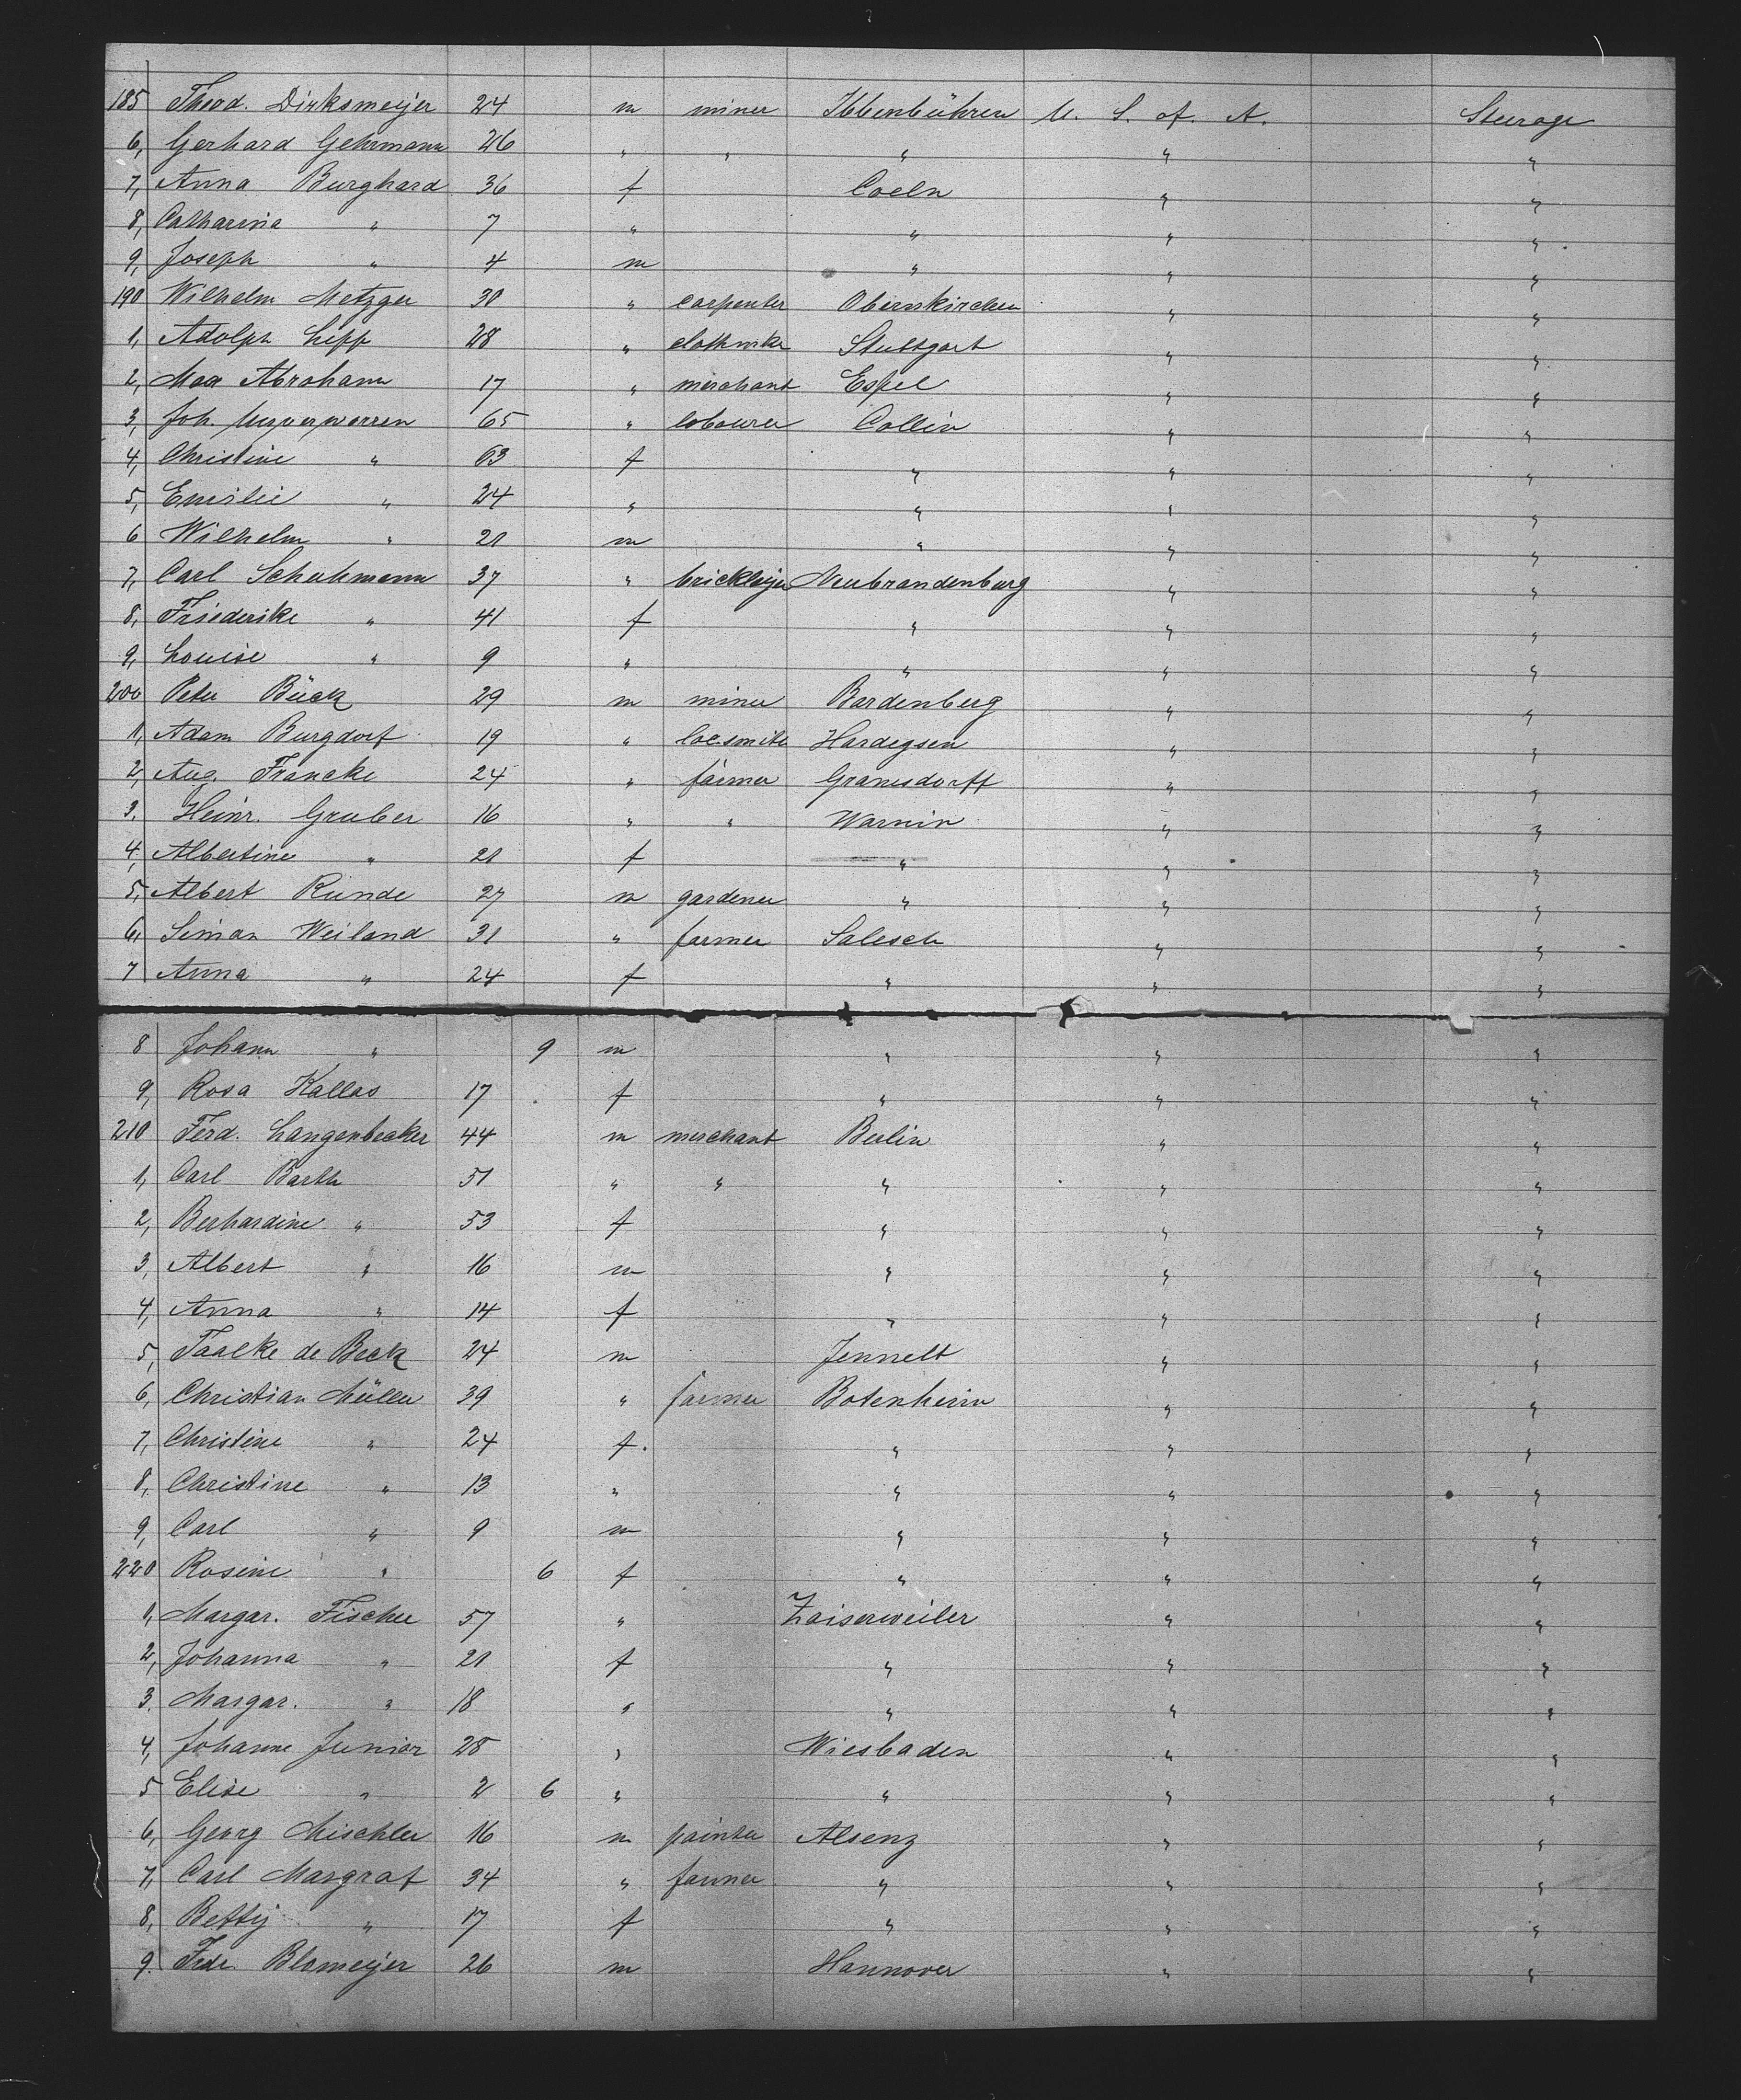 185 Theod. Dirksmeijer 24 m miner Ibbenbühren U. S. of. A. Steerage
6, Gerhard Gehrmann 26 " " " " "
7, Anna Burghard 36 f Coeln " "
8, Catharina " 7 " " " "
9, Joseph " 4 m " " "
190 Wilhelm Metzger 30 " carpenter Obernkirchen " "
1, Adolph Lipp 28 " Stuttgart " "
2, Max Abraham 17 " merchant " "
3, Joh. 65 " labourer Collin " "
4, Christine " 63 f " " "
5, Emilie " 24 " " " "
6 Wilhelm " 21 m " " "
7, Carl Schuhmann 37 " bricklayer Neubrandenburg " "
8, Friederike " 41 f " " "
9, Louise " 9 " " " "
200 Peter Bück 29 m miner Bardenberg " "
1, Adam Burgdorf 19 " locsmith Hardegsen " "
2, Aug. Francke 24 " farmer Gramsdorff " "
3. Heinr. Gruber 16 " " Warnin " "
4, Albertine " 21 f " " "
5, Albert Runde 27 m gardener " " "
6, Simon Weiland 31 " farmer Salesch " "
7 Anna " 24 f " " "
8 Johann " 9 m " " "
9, Rosa Kallas 17 f " " "
210 Ferd. Langenbecker 44 m merchant Berlin " "
1, Carl Barth 51 " " " " "
2, Berhardine " 53 f " " "
3, Albert " 16 m " " "
4, Anna " 14 f " " "
5, Taalke de Beck 24 m Jennelt " "
6, Christian Müller 39 " farmer Botenheim " "
7, Christine " 24 f. " " "
8, Christine " 13 " " " "
9, Carl " 9 m " " "
220 Rosine " 6 f " " "
1, Margar. Fischer 57 " Zaiserweiler " "
2, Johanna " 21 f " " "
3. Margar. " 18 " " " "
4, Johanne Junior 28 " Wiesbaden " "
5 Elise " 2 6 " " " "
6, Georg Mischler 16 m painter Alsenz " "
7, Carl Margraf 34 " farmer " " "
8, Bettij " 17 f " " "
9. Frdr. Blomeijer 26 m Hannover " "